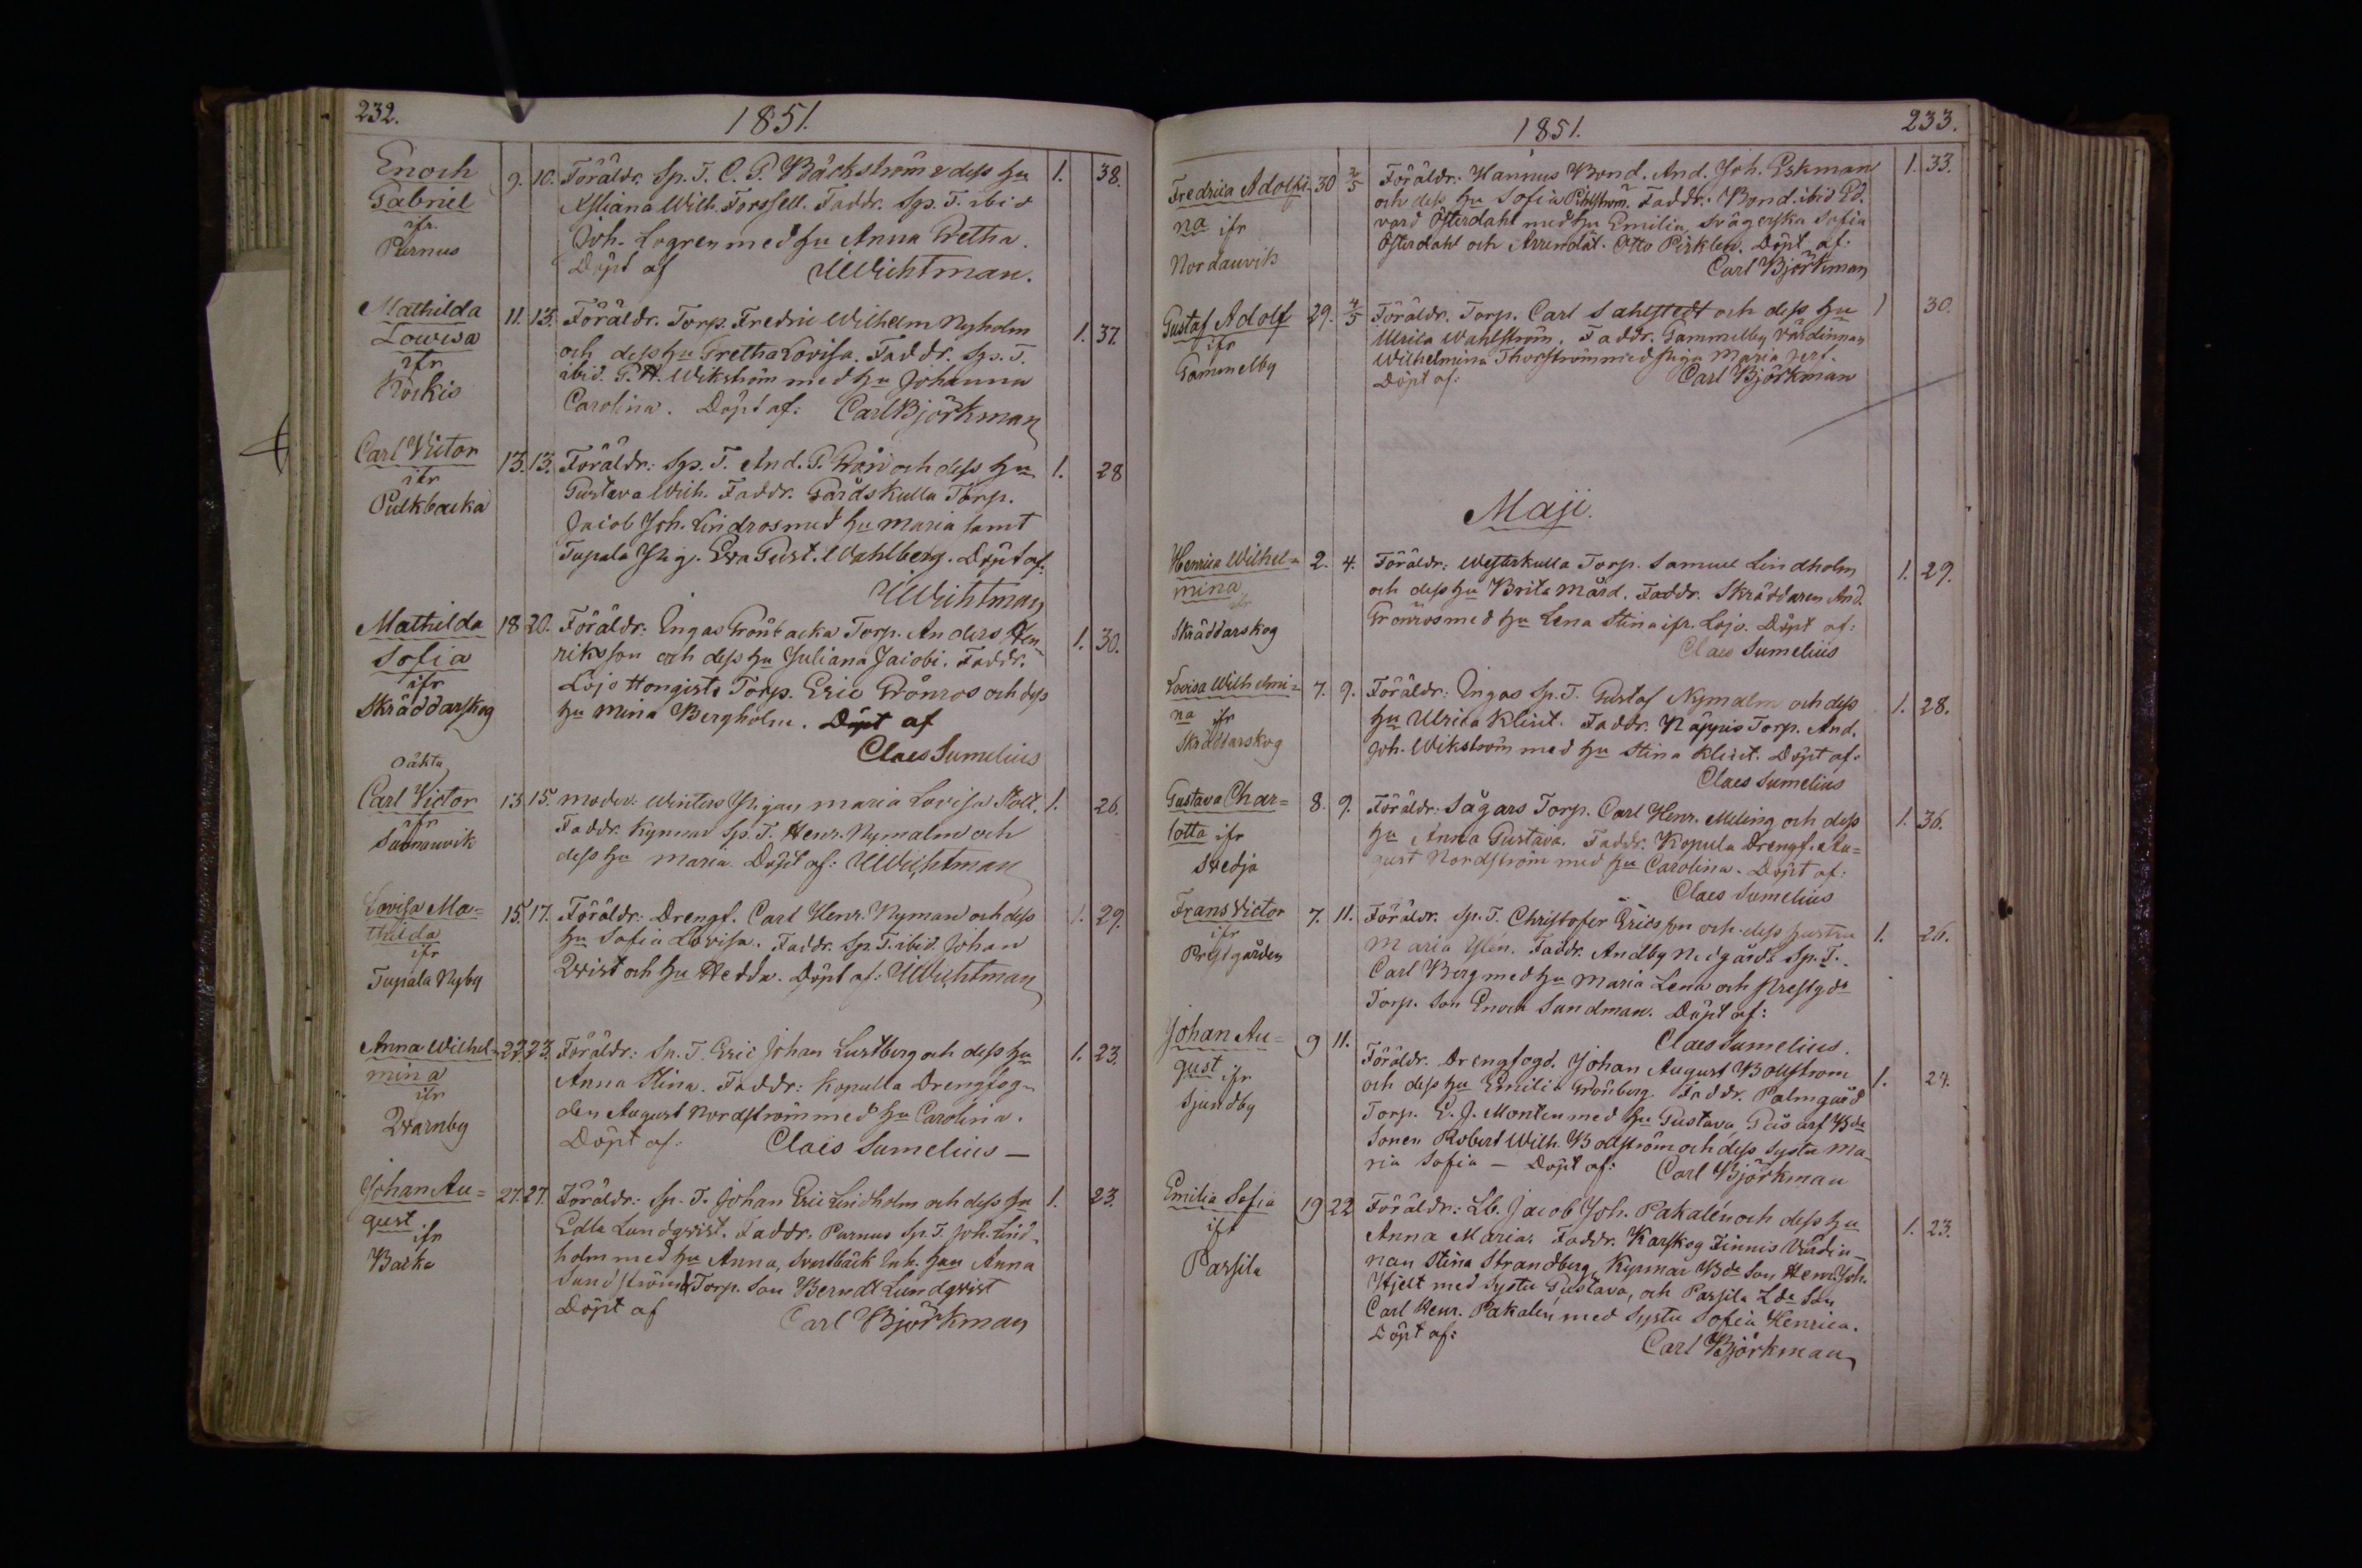 232.
1851.
Enoch
Gabriel
ifr.
Purnus
9. 10. Föräldr. Sp. T. C. G. Bäckström & dess hu 1. 38.
Wilh. Forssell. Faddr. Sp. T. ibid
Joh. Logren med hu Anna Gretha.
Döpt af Wichtman.
Mathilda
Lowisa
ifr
Köckis
11. 13. Föräldr. Torp. Fredric Wilhelm Nyholm 1. 37.
och dess hu Gretha Lovisa. Faddr. Sp. T.
ibid. G. A. Wikström med hu Johanna
Carolina. Döpt af: Carl Björkman
Carl Victor
ifr
Pulkbacka
13. 13. Föräldr: Sp. T. And. G. Grön och dess hu 1. 28
Gustava Wilh. Faddr. Gårdskulla Torp.
Jacob Joh. Lindros med hu Maria samt
Tupala Pig. Eva Gust. Wahlberg. Döpt af:
Wichtman
Mathilda
Sofia
ifr
Skräddarskog
18 20. Föräldr: Ingas Grönbacka Torp. Anders Hen= 1. 30.
riksson och dess hu Juliana Jacobi. Faddr.
Lojo Hongisto Torp. Eric Grönros och dess
hu Mina Bergholm. Döpt af
Claes Sumelius
Oäkta
Carl Victor
ifr
Sunnanvik
13 15. Moder: Winters Pigan Maria Lovisa Stolt. 1. 26.
Faddr. Kyrmar Sp. T. Henr. Nymalm och
dess hu Maria. Döpt af: Wichtman
Lovisa Ma=
thilda
ifr
Tupala Nyby
15. 17. Föräldr: Drengf. Carl Henr. Nyman och dess 1. 29.
hu Sofia Lovisa. Faddr. Sp. T. ibid. Johan
Qvist och hu Hedda. Döpt af: Wichtman
Anna Wilhel=
mina
ifr
Qvarnby
22. 23. Föräldr: Sp. T. Eric Johan Lustberg och dess hu 1. 23.
Anna Stina. Faddr: Kopulla Drengfog=
den August Nordström med hu Carolina.
Döpt af: Claes Sumelius —
Johan Au=
gust
ifr
Backa
27. 27. Föräldr: Sp. T. Johan Eric Lindholm och dess hu 1. 23.
Edla Lundqvist. Faddr. Purnus Sp. T. Joh. Lind=
holm med hu Anna, Svartbäck Enk. hu Anna
Sundström & Torp. Son Berndt Lundqvist
Döpt af Carl Björkman
1851.
233.
Fredrica Adolfi=
na ifr
Nordanvik
30 2/5 Föräldr. Hannus Bond. And. Joh. Eskman 1. 33.
och dess hu Sofia Pihlström. Faddr. Bond. ibid Ed=
vard Österdahl med hu Emilia, svägerska Sofia
Österdahl och Arrendat. Otto Pirklen. Döpt af:
Carl Björkman
Gustaf Adolf
ifr
Gammelby
29. 4/5 Föräldr. Torp. Carl Sahlstedt och dess hu 1 30.
Ulrica Wahlström. Faddr. Gammelby Värdinnan
Wilhelmina Thorström med Pigan Maria
Döpt af: Carl Björkman
Maji.
Henrica Wilhel=
mina
ifr
Skräddarskog
2. 4. Föräldr: Westerkulla Torp. Samuel Lindholm 1. 29.
och dess hu Brita Mård. Faddr. Skräddaren And.
Grönros med hu Lena Stina ifr. Lojo. Döpt af:
Claes Sumelius
Lovisa Wilhelmi=
na ifr
Skräddarskog
7. 9. Föräldr: Ingas Sp. T. Gustaf Nymalm och dess 1. 28.
hu Ulrica Klint. Faddr. Näppis Torp. And.
Joh. Wikström med hu Stina Klint. Döpt af:
Claes Sumelius
Gustava Char=
lotta ifr
Svedja
8. 9. Föräldr: Sågars Torp. Carl Henr. Meling och dess 1. 36.
hu Anna Gustava. Faddr. Kopula Drengf. Au=
gust Nordström med hu Carolina. Döpt af:
Claes Sumelius
Frans Victor
ifr
Prestgården
7. 11. Föräldr. Sp. T. Christofer Ericsson och dess hustru 1. 26.
Maria Glén. Faddr. Andby Nedgårds Sp. T.
Carl Berg med hu Maria Lena och Prestgds
Torp. Son Enoch Sundman. Döpt af:
Claes Sumelius.
Johan Au=
gust ifr
Sjundby
9 11. Föräldr. Drengfogd. Johan August Bollström 1. 24.
och dess hu Emilia Grönberg. Faddr. Palmgård
Torp. E. J. Montin med hu Gustava, Gus arf Bde
Sonen Robert Wilh. Bollström och dess Syster Ma=
ria Sofia — Döpt af: Carl Björkman
Emilia Sofia
ifr
Parsila
19 22 Föräldr: Lb. Jacob Joh. Pakalén och dess hu 1. 23.
Anna Maria. Faddr. Karskog Finnis Värdin=
nan Stina Strandberg, Kyrmar Bde Son Henr. Joh.
Hjelt med Syster Gustava, och Parsila Lde Son
Carl Henr. Pakalén med Syster Sofia Henrica.
Döpt af:
Carl Björkman